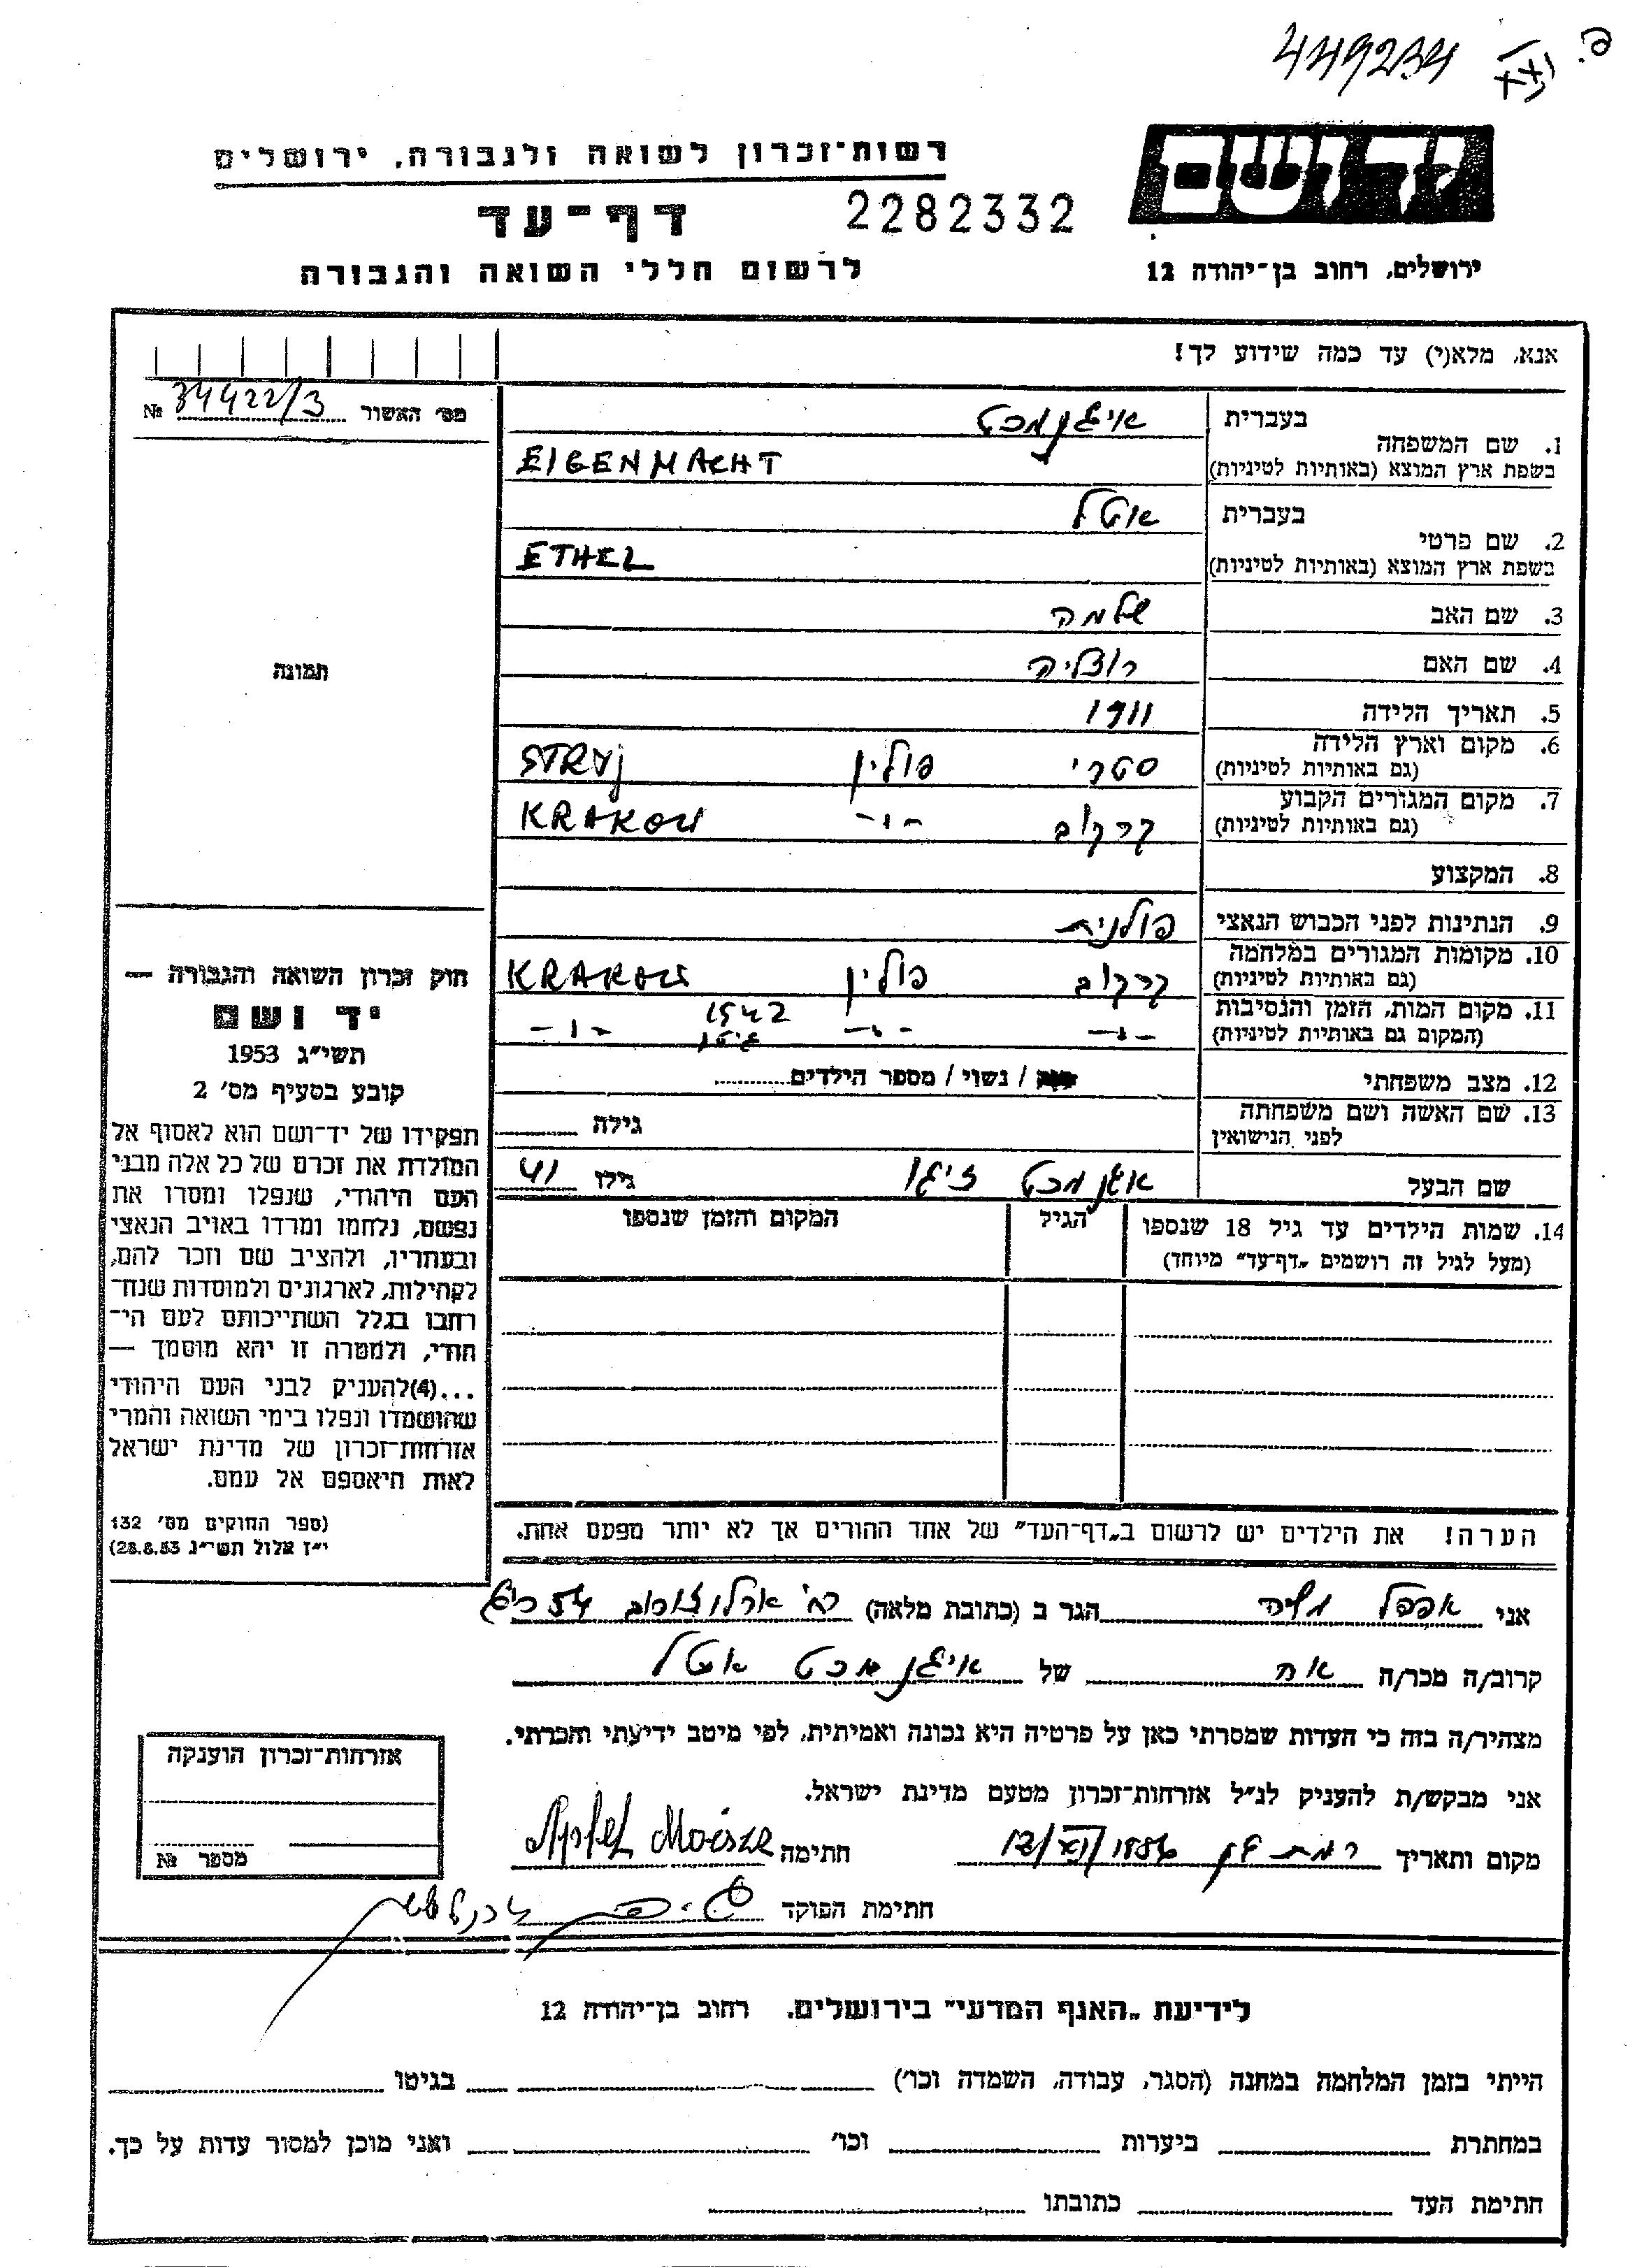 449234
יד ושם
רשות־זכרון לשואה ולגבורה, ירושלים
2282332
דף־עד
ירושלים, רחוב בן־יהודה 12
לרשום חללי השואה והגבורה
אנא, מלא(י) עד כמה שידוע לך!
מס׳ האשור 34422/3 №
תמונה
בעברית איגנמכט
1. שם המשפחה
בשפת ארץ המוצא (באותיות לטיניות) EIGENMACHT
בעברית אטל
2. שם פרטי
בשפת ארץ המוצא (באותיות לטיניות) ETHEL
3. שם האב שלמה
4. שם האם רוזליה
5. תאריך הלידה 1911
6. מקום וארץ הלידה
(גם באותיות לטיניות) סטרי פולין STRYJ
7. מקום המגורים הקבוע
(גם באותיות לטיניות) קרקוב -"- KRAKOW
8. המקצוע
9. הנתינות לפני הכבוש הנאצי פולנית
10. מקומות המגורים במלחמה
(גם באותיות לטיניות) קרקוב פולין KRAKOW
11. מקום המות, הזמן והנסיבות
(המקום גם באותיות לטיניות) -"- -"- 1942 גיטו -"-
12. מצב משפחתי / נשוי / מספר הילדים
13. שם האשה ושם משפחתה
לפני הנישואין גילה
שם הבעל איגנמכט זיגו גילו 41
14. שמות הילדים עד גיל 18 שנספו
(מעל לגיל זה רושמים „דף־עד” מיוחד)
הגיל
המקום והזמן שנספו
הערה! את הילדים יש לרשום ב„דף־העד” של אחד ההורים אך לא יותר מפעם אחת.
חוק זכרון השואה והגבורה —
יד ושם
תשי״ג 1953
קובע בסעיף מס׳ 2
תפקידו של יד־ושם הוא לאסוף אל
המולדת את זכרם של כל אלה מבני
העם היהודי, שנפלו ומסרו את
נפשם, נלחמו ומרדו באויב הנאצי
ובעוזריו, ולהציב שם וזכר להם,
לקהילות, לארגונים ולמוסדות שנח־
רבו בגלל השתייכותם לעם הי־
הודי, ולמטרה זו יהא מוסמך —
...(4)להעניק לבני העם היהודי
שהושמדו ונפלו בימי השואה והמרי
אזרחות־זכרון של מדינת ישראל
לאות היאספם אל עמם.
(ספר החוקים מס׳ 132
י״ז אלול תשי״ג 28.8.53)
אני אפפל משה הגר ב (כתובת מלאה) רח׳ ארלוזורוב 54
קרוב/ה מכר/ה אח של איגנמכט אטל
מצהיר/ה בזה כי העדות שמסרתי כאן על פרטיה היא נכונה ואמיתית, לפי מיטב ידיעתי והכרתי.
אני מבקש/ת להעניק לנ״ל אזרחות־זכרון מטעם מדינת ישראל.
מקום ותאריך רמת גן חתימה Apfel Moisze
חתימת הפוקד
אזרחות־זכרון הוענקה
מספר №
לידיעת „האגף המדעי” בירושלים, רחוב בן־יהודה 12
הייתי בזמן המלחמה במחנה (הסגר, עבודה, השמדה וכו׳) בגיטו
במחתרת ביערות וכו׳ ואני מוכן למסור עדות על כך.
חתימת העד כתובתו